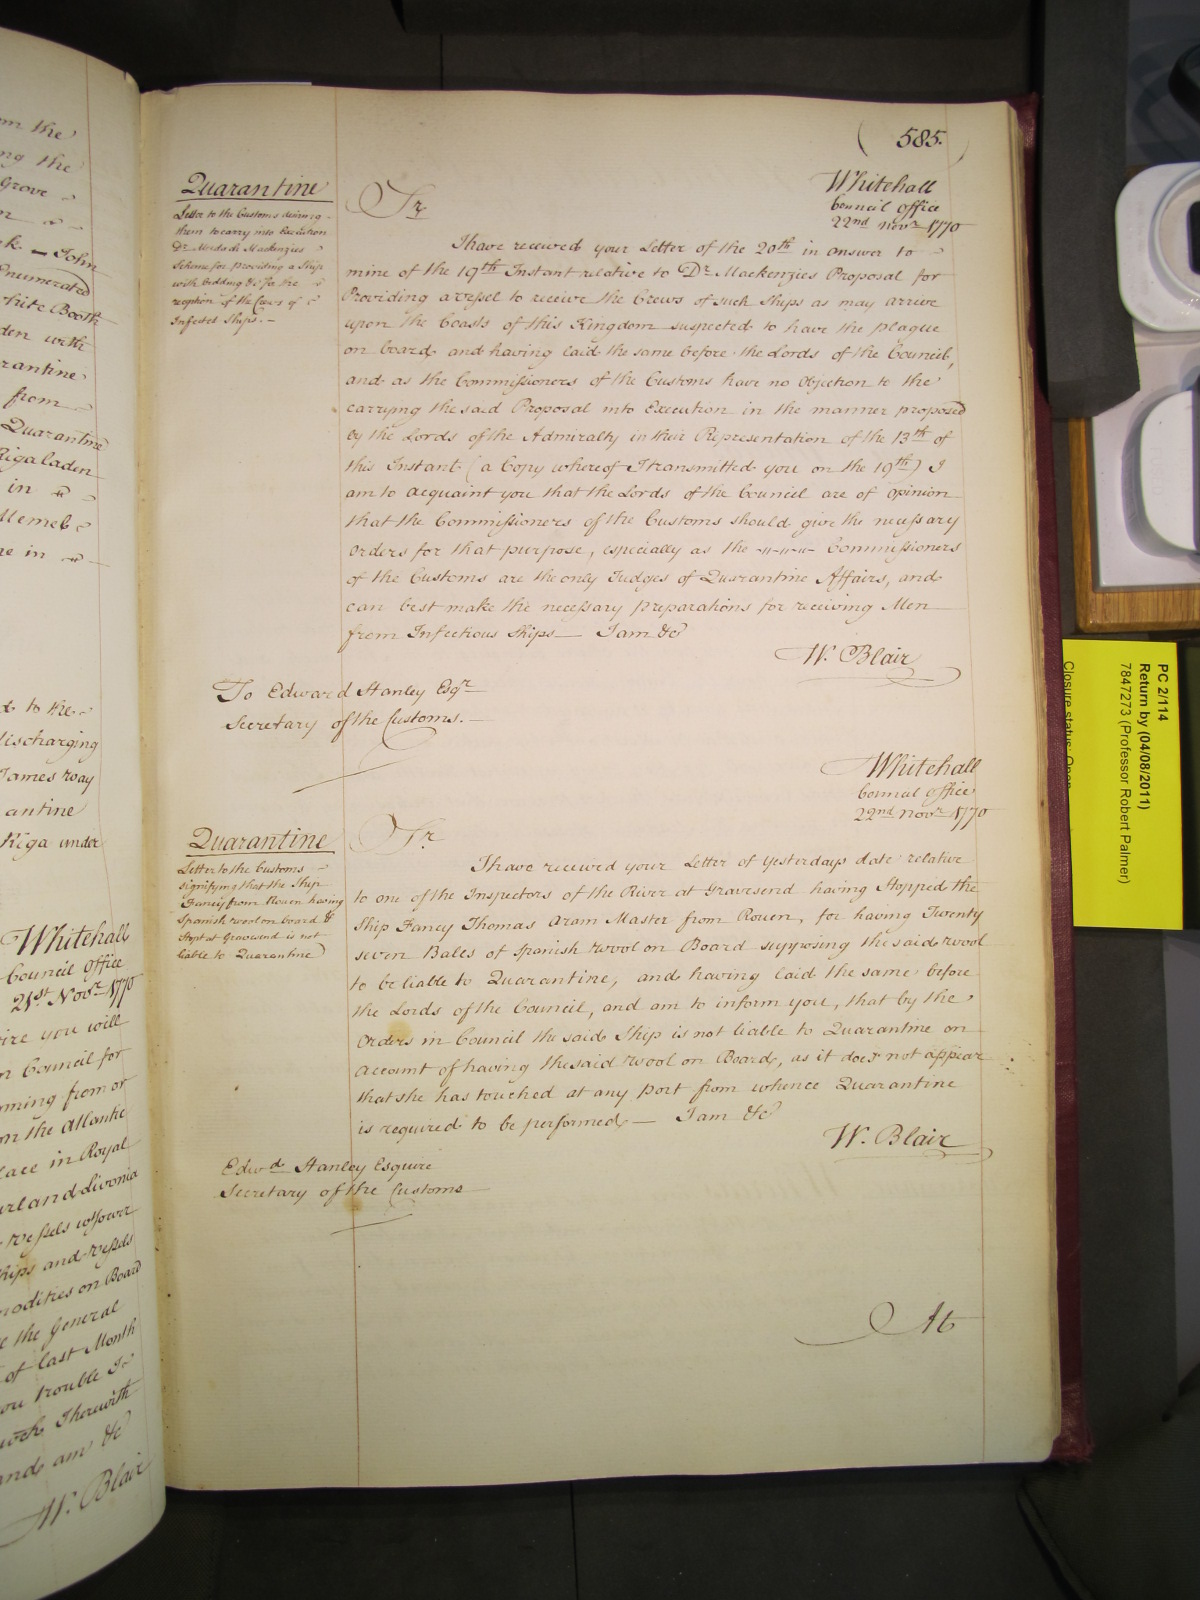 om the
ng the
Grove
n
k. — John
Enumerated
hite Booth
den with
rantine
from
Quarantine
Riga laden
in
Memel
ne in
d to the
discharging
James way
antine
Riga under
Whitehall
Council Office
21st Novr. 1770
ire you will
n Council for
oming from or
on the Atlantic
lace in Royal
urland Livonia
Vessels whose
hips and Vessels
modities on Board
e the General
of last Month
ou trouble
Therewith
and am &c
W. Blair
(585.)
Whitehall
Council Office
22nd Novr. 1770
Quarantine
Letter to the Customs desiring
them to carry into Execution
Dr. Mackenzies
Scheme for providing a Ship
with bedding &c for the
reception of the Crews of
Infected Ships. —
Sr.
I have received your Letter of the 20th in answer to
mine of the 19th Instant relative to Dr. Mackenzies Proposal for
Providing a vessel to receive the Crews of such Ships as may arrive
upon the Coasts of this Kingdom suspected to have the plague
on board and having laid the same before the Lords of the Council,
and as the Commissioners of the Customs have no Objection to the
carrying the said Proposal into Execution in the manner proposed
by the Lords of the Admiralty in their Representation of the 13th of
this Instant (a Copy whereof I transmitted you on the 19th) I
am to acquaint you that the Lords of the Council are of opinion
that the Commissioners of the Customs should give the necessary
Orders for that purpose, especially as the Commissioners
of the Customs are the only Judges of Quarantine Affairs, and
can best make the necessary preparations for receiving Men
from Infectious Ships — I am &c
W. Blair
To Edward Stanley Esqr.
Secretary of the Customs. —
Whitehall
Council Office
22nd Novr. 1770
Quarantine
Letter to the Customs
signifying that the Ship
Fancy from Rouen having
Spanish wool on board &
Stopt at Gravesend is not
liable to Quarantine
Sr.
I have received your Letter of Yesterdays date relative
to one of the Inspectors of the River at Gravesend having Stopped the
Ship Fancy Thomas Aram Master from Rouen, for having Twenty
seven Bales of Spanish Wool on Board supposing the said Wool
to be liable to Quarantine, and having laid the same before
the Lords of the Council, and am to inform you, that by the
Orders in Council the said Ship is not liable to Quarantine on
account of having the said Wool on Board, as it does not appear
that she has touched at any port from whence Quarantine
is required to be performed — I am &c
W. Blair
Edwd. Stanley Esquire
Secretary of the Customs
At
PC 2/114
Return by (04/08/2011)
7847273 (Professor Robert Palmer)
Closure status: Open